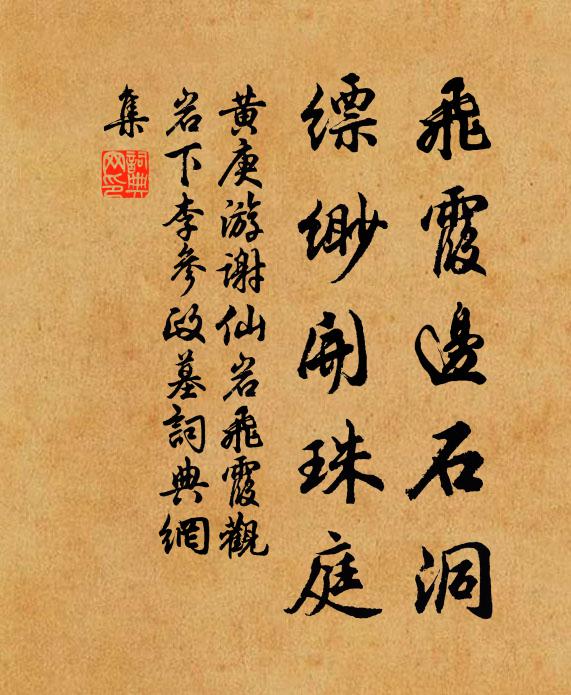 飛霞邊石洞
縹緲開珠庭
黄庚游謝仙岩飛霞觀
岩下李參政墓詞典網
集
詞典
网印